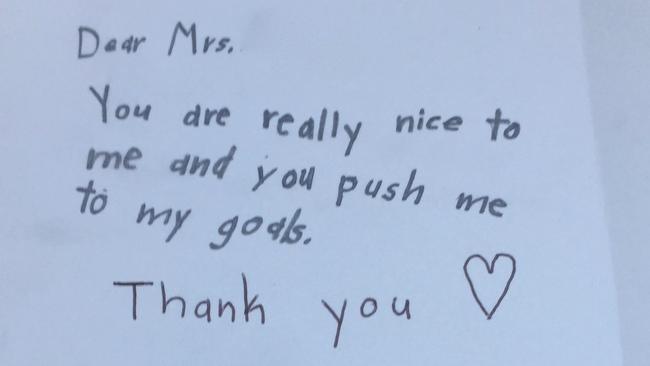 Dear Mrs.
You are really nice to
me and you push me
to my goals.
Thank you ♡